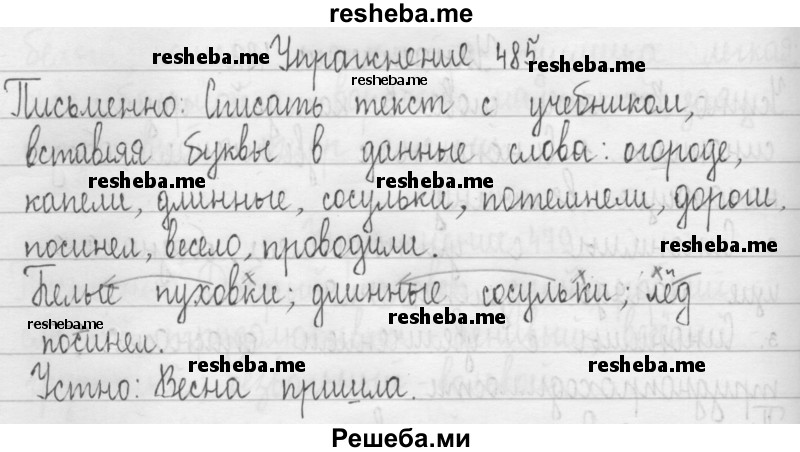 resheba.me
Упражнение 485
resheba.me resheba.me resheba.me
Письменно: Списать текст с учебником,
вставляя буквы в данные слова: огороде,
resheba.me resheba.me
капели, длинные, сосульки, потемнели, дороги,
посинел, весело, проводили.
resheba.me
Белые пуховки; длинные сосульки; лёд
resheba.me resheba.me
посинел.
resheba.me resheba.me
Устно: Весна пришла.
Решеба.ми